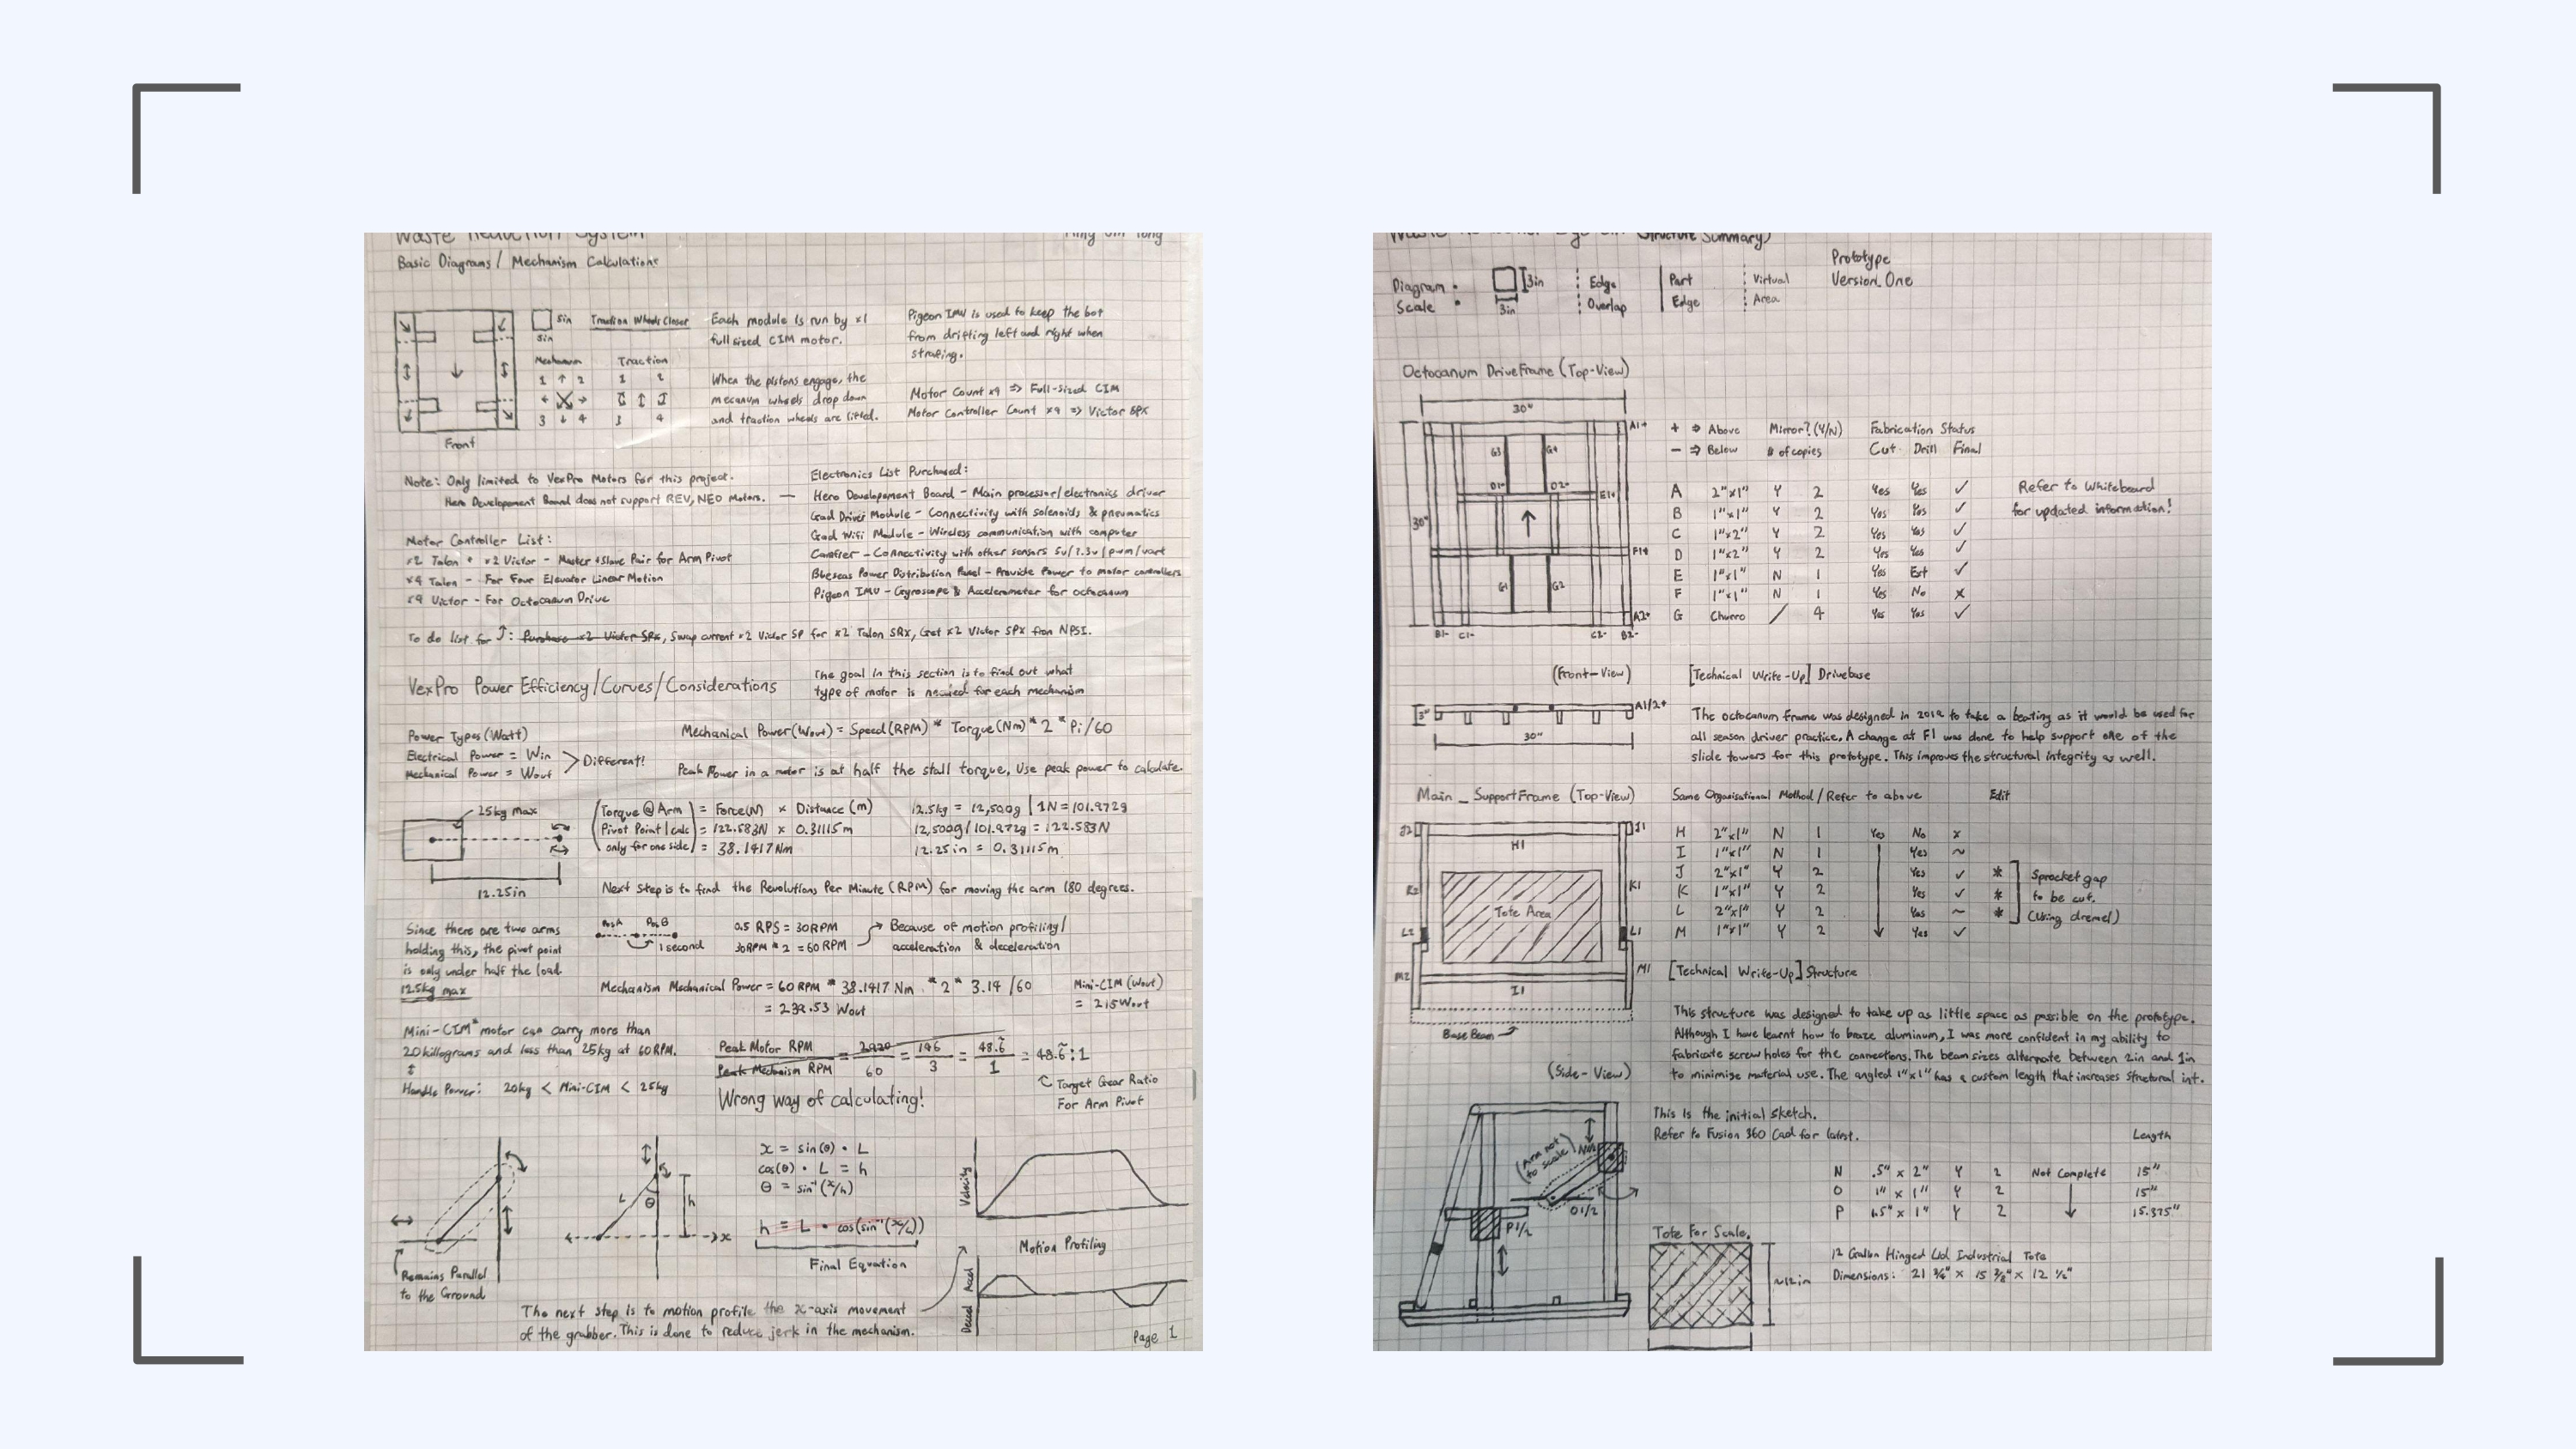 Waste Reduction System
Ming
Basic Diagrams / Mechanism Calculations
5in
5in
Traction Wheels Closer
Mechanum Traction
1 ↑ 2 1 2
3 ↓ 4 3 4
Front
Each module is run by x1
full sized CIM motor.
When the pistons engage, the
mecanum wheels drop down
and traction wheels are lifted.
Pigeon IMU is used to keep the bot
from drifting left and right when
strafing.
Motor Count x4 => Full-sized CIM
Motor Controller Count x4 => Victor SPX
Note: Only limited to VexPro Motors for this project.
Hero Developement Board does not support REV, NEO Motors. —
Motor Controller List:
x2 Talon + x2 Victor - Master + Slave Pair for Arm Pivot
x4 Talon - For Four Elevator Linear Motion
x4 Victor - For Octocanum Drive
Electronics List Purchased:
Hero Developement Board - Main processor/electronics driver
Gad Driver Module - Connectivity with solenoids & pneumatics
Gad Wifi Module - Wireless communication with computer
Canifier - Connectivity with other sensors 5v/3.3v/pwm/uart
Power Distribution Panel - Provide Power to motor controllers
Pigeon IMU - Gyroscope & Accelerometer for octocanum
To do list for ⤴: Purchase x2 Victor SPX, Swap current x2 Victor SP for x2 Talon SRX, Get x2 Victor SPX from NPSI.
VexPro Power Efficiency/Curves/Considerations
The goal in this section is to find out what
type of motor is needed for each mechanism
Power Types (Watt)
Electrical Power = Win
Mechanical Power = Wout
Different!
Mechanical Power (Wout) = Speed (RPM) * Torque (Nm) * 2 * Pi/60
Peak Power in a motor is at half the stall torque, Use peak power to calculate.
25kg max
12.25in
Torque @ Arm = Force(N) × Distance (m)
Pivot Point | calc = 122.583N × 0.31115m
only for one side = 38.1417Nm
12.5kg = 12,500g | 1N = 101.972g
12,500g/101.972g = 122.583N
12.25in = 0.31115m
Next step is to find the Revolutions Per Minute (RPM) for moving the arm 180 degrees.
Since there are two arms
holding this, the pivot point
is only under half the load
12.5kg max
Pos A Pos B
1 second
0.5 RPS = 30RPM
30RPM * 2 = 60 RPM
Because of motion profiling/
acceleration & deceleration
Mechanism Mechanical Power = 60 RPM * 38.1417 Nm * 2 * 3.14 /60
= 239.53 Wout
Mini-CIM (Wout)
= 215Wout
Mini-CIM* motor can carry more than
20 killograms and less than 25kg at 60RPM.
Handle Power: 20kg < Mini-CIM < 25kg
Peak Motor RPM = 2920 = 146 = 48.6 = 48.6:1
Peak Mechanism RPM 60 3 1
Wrong way of calculating!
Target Gear Ratio
For Arm Pivot
x = sin(θ) · L
cos(θ) · L = h
θ = sin⁻¹(x/h)
h = L · cos(sin⁻¹(x/L))
Final Equation
L θ h
x
Remains Parallel
to the Ground
Velocity
Motion Profiling
Accel
Deccel
The next step is to motion profile the x-axis movement
of the grabber. This is done to reduce jerk in the mechanism.
Page 1
Structure Summary)
Diagram :
Scale :
3in
3in
Edge
Overlap
Part
Edge
Virtual
Area
Prototype
Version One
Octocanum DriveFrame (Top-View)
30"
30"
A1+
G3 G4
D1- D2-
E1+
F1+
G1 G2
A2+
B1- C1- C2- B2-
+ ⇒ Above Mirror? (Y/N) Fabrication Status
- ⇒ Below # of copies Cut Drill Final
A 2"x1" Y 2 Yes Yes ✓
B 1"x1" Y 2 Yes Yes ✓
C 1"x2" Y 2 Yes Yes ✓
D 1"x2" Y 2 Yes Yes ✓
E 1"x1" N 1 Yes Est ✓
F 1"x1" N 1 Yes No x
G Churro / 4 Yes Yes ✓
Refer to Whiteboard
for updated information!
(Front-View)
3"
A1/2+
30"
[Technical Write-Up] Drivebase
The octocanum frame was designed in 2019 to take a beating as it would be used for
all season driver practice. A change at F1 was done to help support one of the
slide towers for this prototype. This improves the structural integrity as well.
Main _ SupportFrame (Top-View)
J2 J1
H1
K2 K1
Tote Area
L2 L1
M2 M1
I1
Base Beam
Same Organisational Method / Refer to above Edit
H 2"x1" N 1 Yes No x
I 1"x1" N 1 Yes ~
J 2"x1" Y 2 Yes ✓ *
K 1"x1" Y 2 Yes ✓ *
L 2"x1" Y 2 Yes ~ *
M 1"x1" Y 2 Yes ✓
Sprocket gap
to be cut.
(Using dremel)
[Technical Write-Up] Structure
This structure was designed to take up as little space as possible on the prototype.
Although I have learnt how to braze aluminum, I was more confident in my ability to
fabricate screw holes for the connections. The beam sizes alternate between 2in and 1in
to minimise material use. The angled 1"x1" has a custom length that increases structural int.
(Side-View)
(Arm not
to scale)
N1/2
O1/2
P1/2
This is the initial sketch.
Refer to Fusion 360 Cad for latest.
Length
N .5" x 2" Y 2 Not Complete 15"
O 1" x 1" Y 2 15"
P 1.5" x 1" Y 2 15.375"
Tote For Scale.
~12in
12 Gallon Hinged Lid Industrial Tote
Dimensions: 21 3/4" x 15 3/8" x 12 1/2"